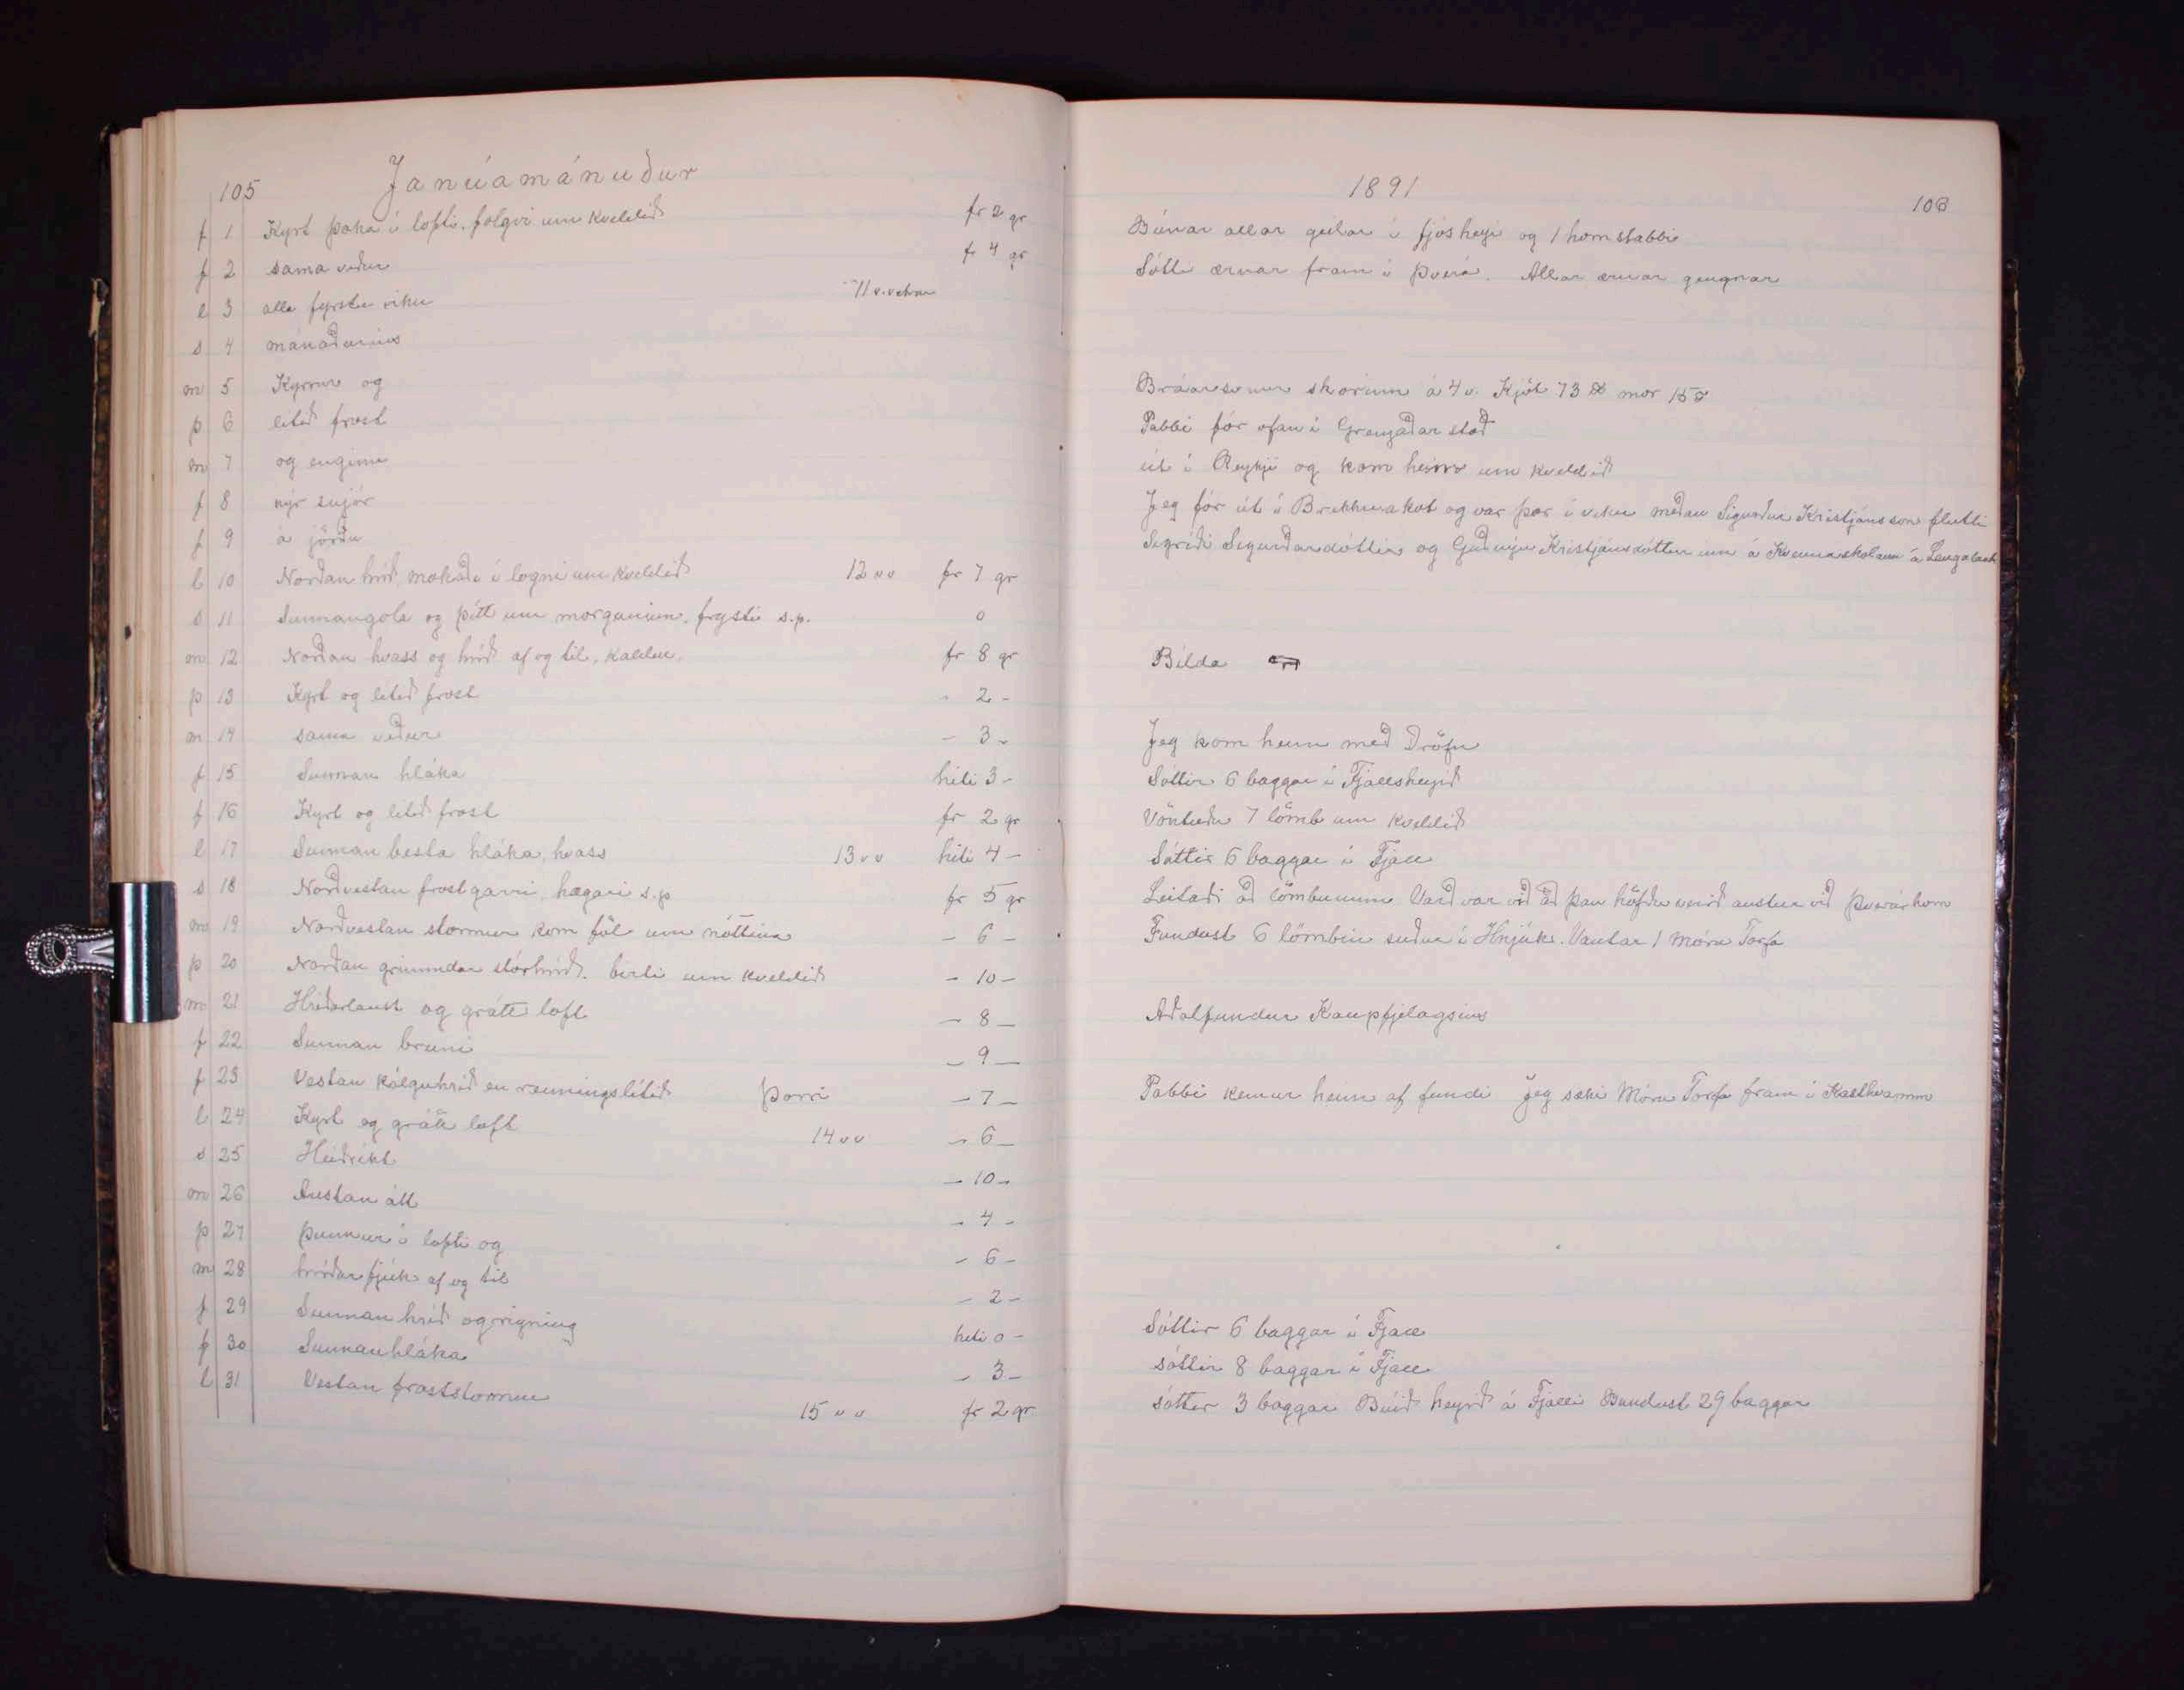 105
Janúamánuður
f 1 Kyrt þoka í lofti, fölgvi um kveldið fr 2 gr
f 2 sama veður fr 4 gr
l 3 alla fyrstu viku 11 v. vetrar
s 4 mánaðarins
m 5 Kyrrur og
þ 6 lítið frost
m 7 og enginn
f 8 nýr snjór
f 9 á jörðu
l 10 Norðan hríð, mokaði í logni um kveldið 12 v v fr 7 gr
s 11 Sunnangola og þítt um morguninn, frysti s.p. 0
m 12 Norðan hvass og hríð af og til, kaldur, fr 8 gr
þ 13 Kyrt og lítið frost - 2 -
m 14 sama veður - 3 -
f 15 Sunnan hláka hiti 3 -
f 16 Kyrt og lítið frost fr 2 gr
l 17 Sunnan besta hláka, hvass 13 v v hiti 4 -
s 18 Norðvestan frostgarri, hægari s.p fr 5 gr
m 19 Norðvestan stormur kom föl um nóttina - 6 -
þ 20 Norðan grimmdar stórhríð. birti um kveldið - 10 -
m 21 Hríðarlaust og grátt loft - 8 -
f 22 Sunnan bruni - 9 -
f 23 Vestan kólguhríð en rennings lítið Þorri - 7 -
l 24 Kyrt og grátt loft 14 v v - 6 -
s 25 Heiðríkt - 10 -
m 26 Austan átt - 4 -
þ 27 Þunnur í lofti og - 6 -
m 28 hríðarfjúk af og til - 2 -
f 29 Sunnan hríð og rigning hiti 0 -
f 30 Sunnanhláka - 3 -
l 31 Vestan froststormur 15 v v fr 2 gr
1891
106
Búnar allar geilar í fjósheyi og 1 hornstabbi
Sótti ærnar fram í Þverá. Allar ærnar gengnar
skorinn á 4 v. Kjöt 73 ℔ mör 15 ℔
Pabbi fór ofan í Grenjaðarstað
út í Reyki og kom heim um kveldið
Jeg fór út í Brekknakot og var þar í viku meðan Sigurður Kristjánsson flutti
Sigríði Sigurðardóttir og Guðnýu Kristjánsdóttur inn á Kvennaskólann á Laugaland
Bílda
Jeg kom heim með Dröfn
Sóttir 6 baggar í Fjallsheyið
Vöntuðu 7 lömb um kveldið
Sóttir 6 baggar í Fjall
Leitaði að lömbunum Varð var við að þau höfðu verið austur við Þverárhorn
Fundust 6 lömbin suður í Hnjúk. Vantar 1 Móru Torfa
Aðalfundur Kaupfjelagsins
Pabbi kemur heim af fundi Jeg sæki Móru Torfa fram í Kasthvamm
Sóttir 6 baggar í Fjall
sóttir 8 baggar í Fjall
sóttir 3 baggar Búið heyið á Fjalli Bundust 29 baggar